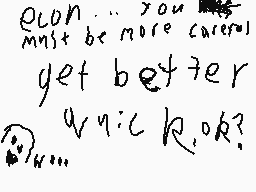 econ... you
must be more careful
get better
quick, ok?
w...